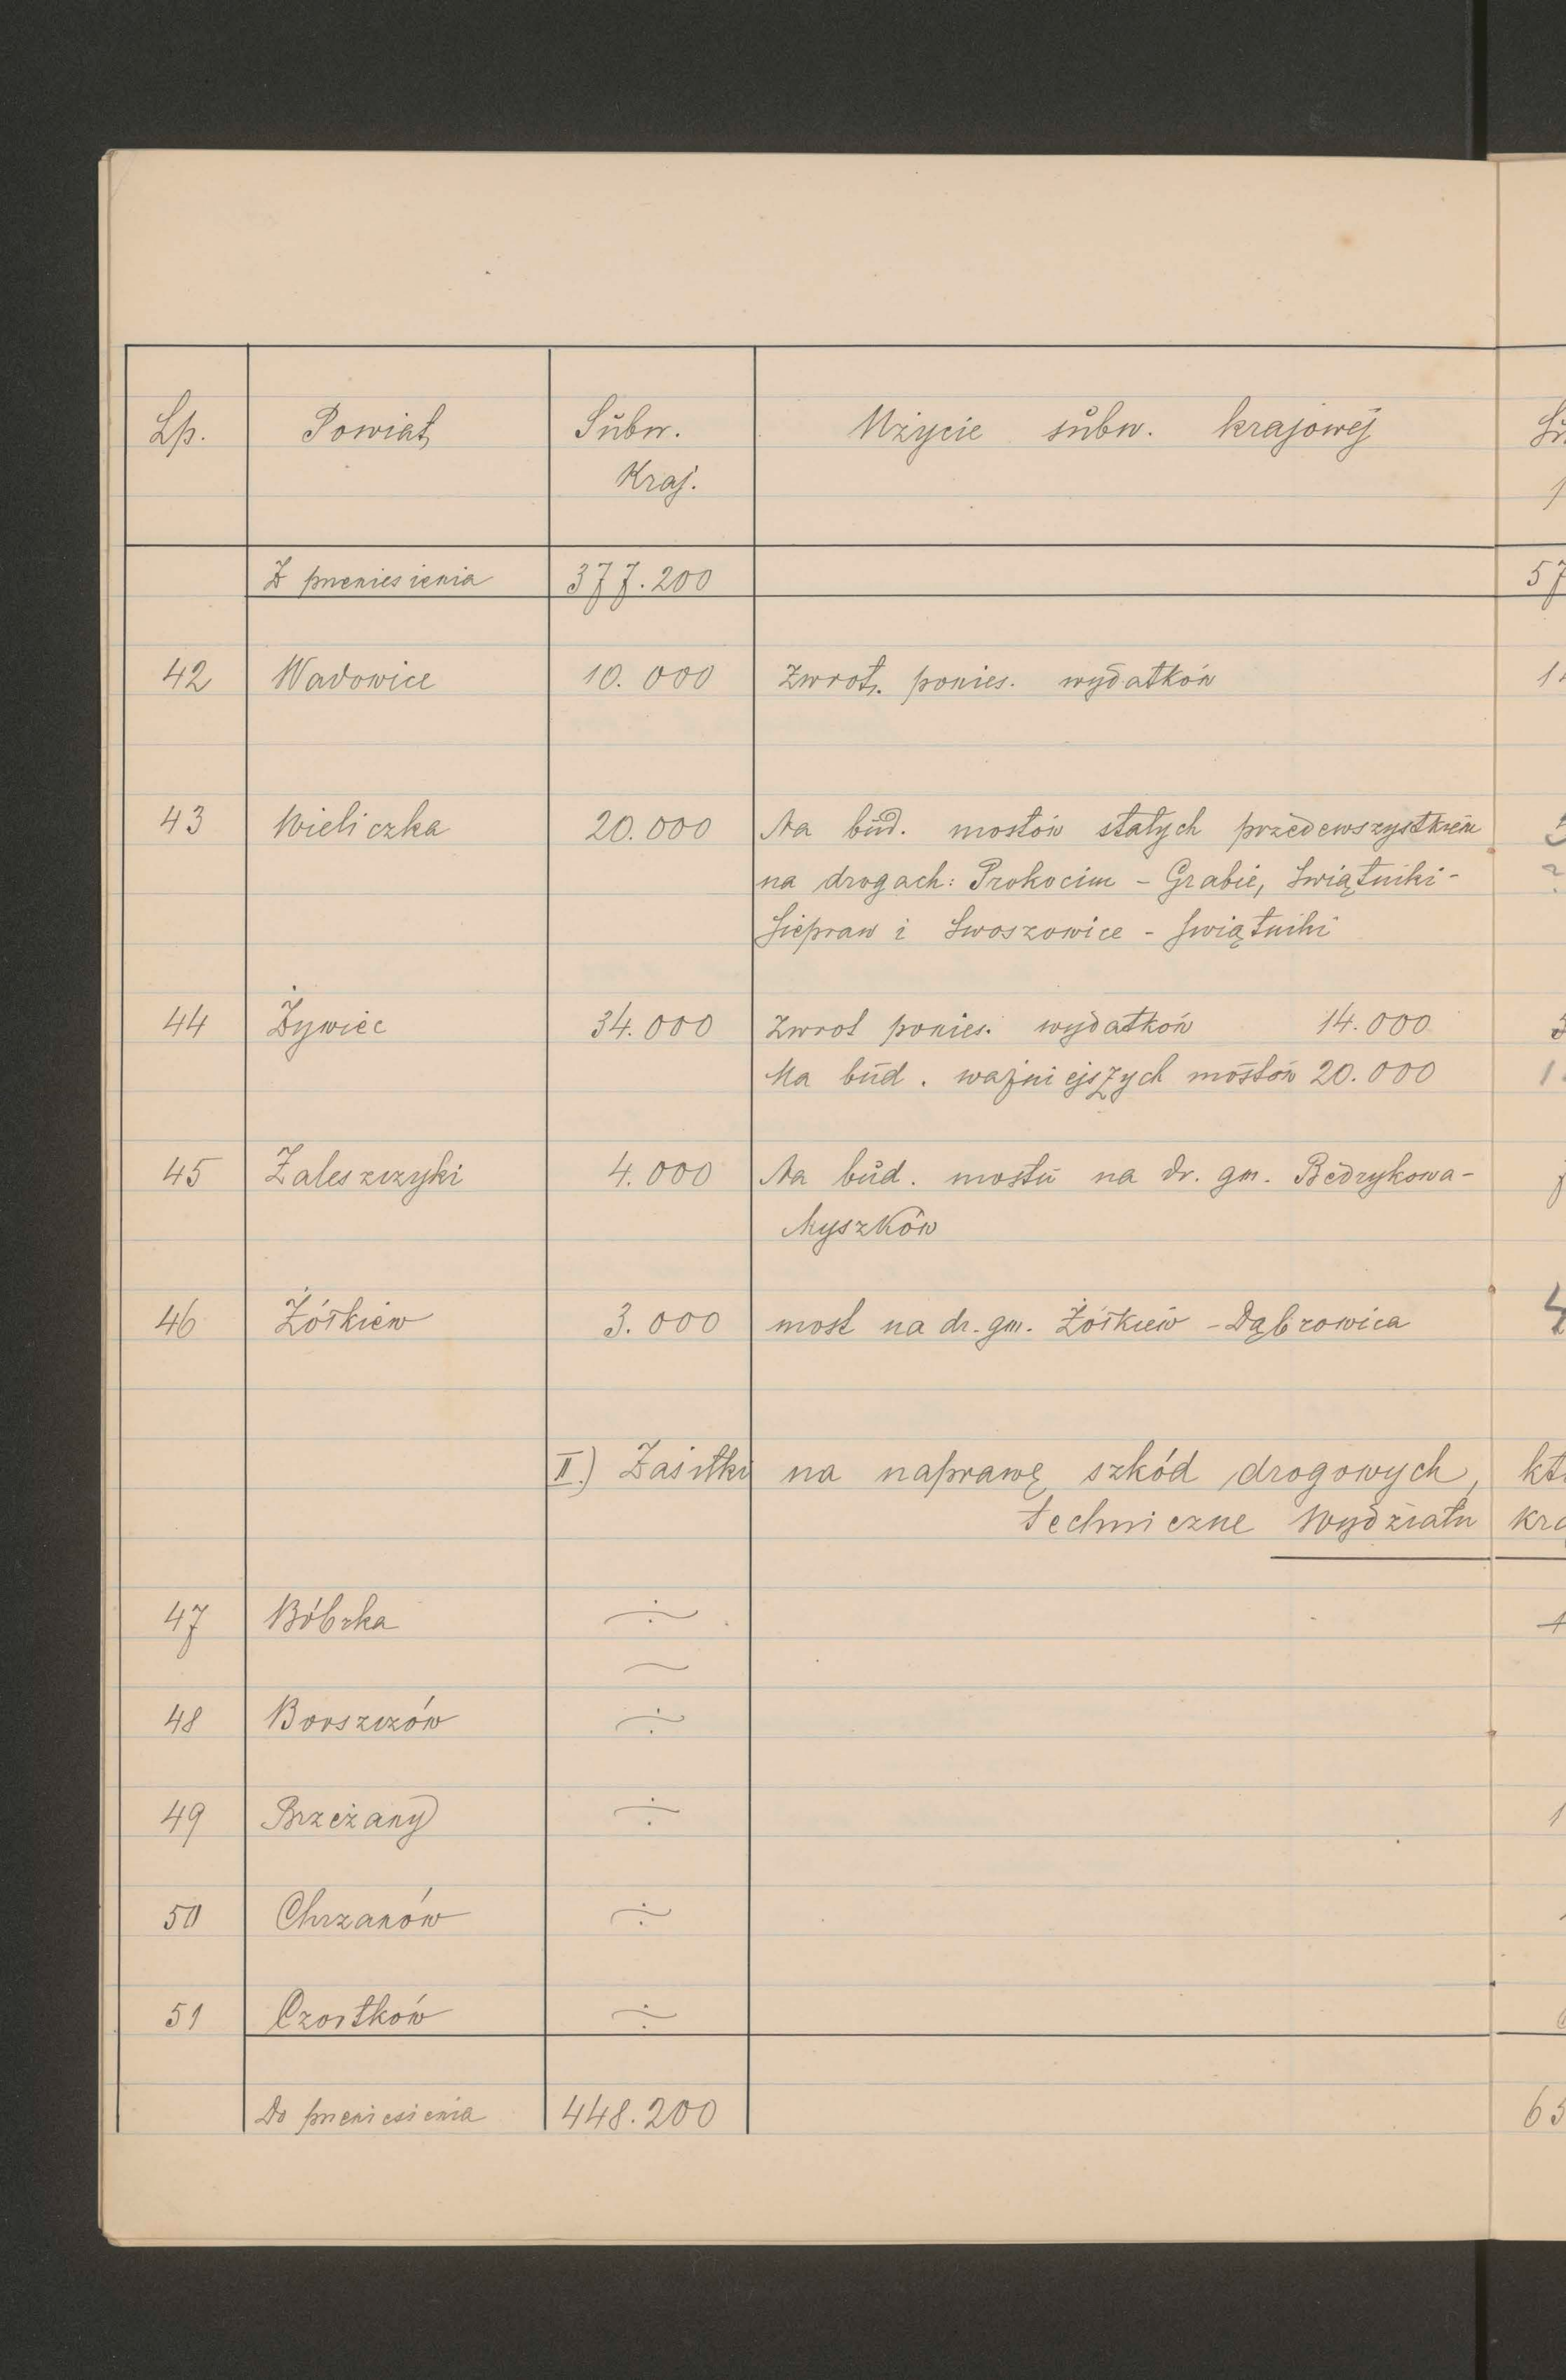 Lp. Powiat Subw. Użycie subw. krajowej
Kraj.
Z przeniesienia 377.200
42 Wadowice 10.000 Zwrot. ponies. wydatków
43 Wieliczka 20.000 Na bud. mostów stałych przedewszystkiem
na drogach: Prokocim - Grabie, Swiątniki -
Siepraw i Swoszowice - Swiątniki
44 Żywiec 34.000 Zwrot ponies. wydatków 14.000
Na bud. ważniejszych mostów 20.000
45 Zaleszczyki 4.000 Na bud. mostu na dr. gm. Bedrykowa -
Myszków
46 Żółkiew 3.000 most na dr. gm. Żółkiew - Dąbrowica
II.) Zasiłki na naprawę szkód drogowych,
techniczne Wydziału
47 Bóbrka ÷
48 Borszczów ÷
49 Brzeżany ÷
50 Chrzanów ÷
51 Czortków ÷
Do przeniesienia 448.200